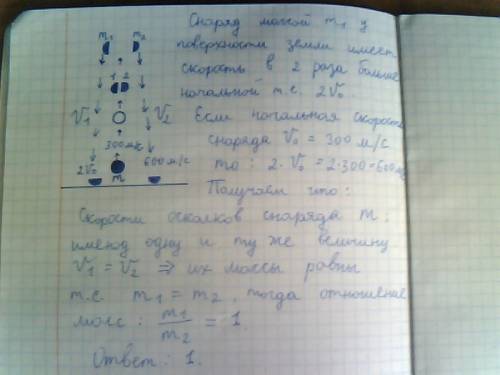 Снаряд массой m₁ у
поверхности земли имеет
скорость в 2 раза больше
начальной т.е. 2V₀
Если начальная скорость
снаряда V₀ = 300 м/с
то : 2·V₀ = 2·300=600м/с
Получаем что :
m₁ m₂
1 2
V₁ V₂
300м/с
2V₀ 600м/с
m
Скорости осколков снаряда m :
имеют одну и ту же величину
V₁ = V₂ ⇒ их массы равны
т.е. m₁ = m₂ , тогда отношение
масс : m₁/m₂ = 1.
Ответ : 1.